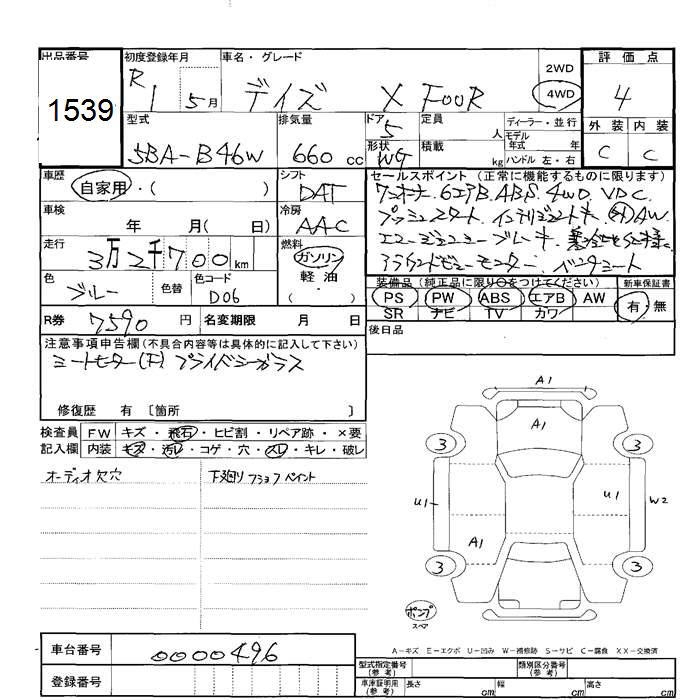 出品番号 初度登録年月 車名・グレード 評価点
1539
R1 5月 デイズ X FOUR 2WD 4WD 4
型式 排気量 ドア 定員 ディーラー・並行 外装 内装
5BA-B46W 660 cc 5 人 モデル年式 年 C C
形状 WG 積載 kg ハンドル 左・右
車歴 シフト セールスポイント (正常に機能するものに限ります)
自家用・( ) DAT ワンオーナー. 6エアB. ABS. 4WD VDC.
車検 冷房 プッシュスタート. インテリジェントキー. 外AW
年 月( 日) AAC エマージェンシーブレーキ.
走行 燃料 アラウンドビューモニター. ベンチシート
3万2千700km ガソリン
色 色替 色コード 軽油
ブルー D06 ( )
装備品 (純正品に限り○をつけてください) 新車保証書
PS PW ABS エアB AW 有・無
SR ナビ TV カワ
R券 7590 円 名変期限 月 日
後日品
注意事項申告欄 (不具合内容等は具体的に記入して下さい)
シートヒーター(F) プライバシーガラス
修復歴 有 〔箇所 〕
検査員 FW キズ・飛石・ヒビ割・リペア跡・×要
記入欄 内装 キズ・汚レ・コゲ・穴・スレ・キレ・破レ
オーディオ欠穴 下廻りフショクペイント
A1
A1
3 3
U1 U1 W2
A1
3 3
ポンプ
スペア
A−キズ E−エクボ U−凹み W−補修跡 S−サビ C−腐食 XX−交換済
車台番号 0000496
登録番号
型式指定番号(参考) 類別区分番号(参考)
車庫証明用(参考) 長さ cm 幅 cm 高さ cm